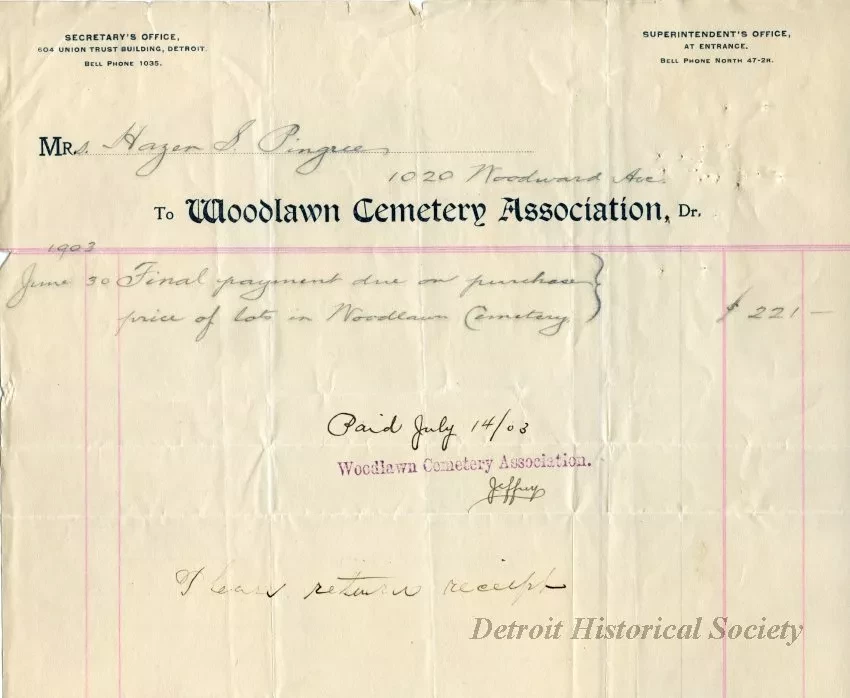 SECRETARY'S OFFICE,
604 UNION TRUST BUILDING, DETROIT.
BELL PHONE 1035.
SUPERINTENDENT'S OFFICE,
AT ENTRANCE.
BELL PHONE NORTH 47-2R.
MRs. Hazen S. Pingree
1020 Woodward Ave.
To Woodlawn Cemetery Association, Dr.
1903
June 30 Final payment due on purchase
price of lots in Woodlawn Cemetery } $ 221 —
Paid July 14/03
Woodlawn Cemetery Association.
Jeffrey
Please return receipt
Detroit Historical Society